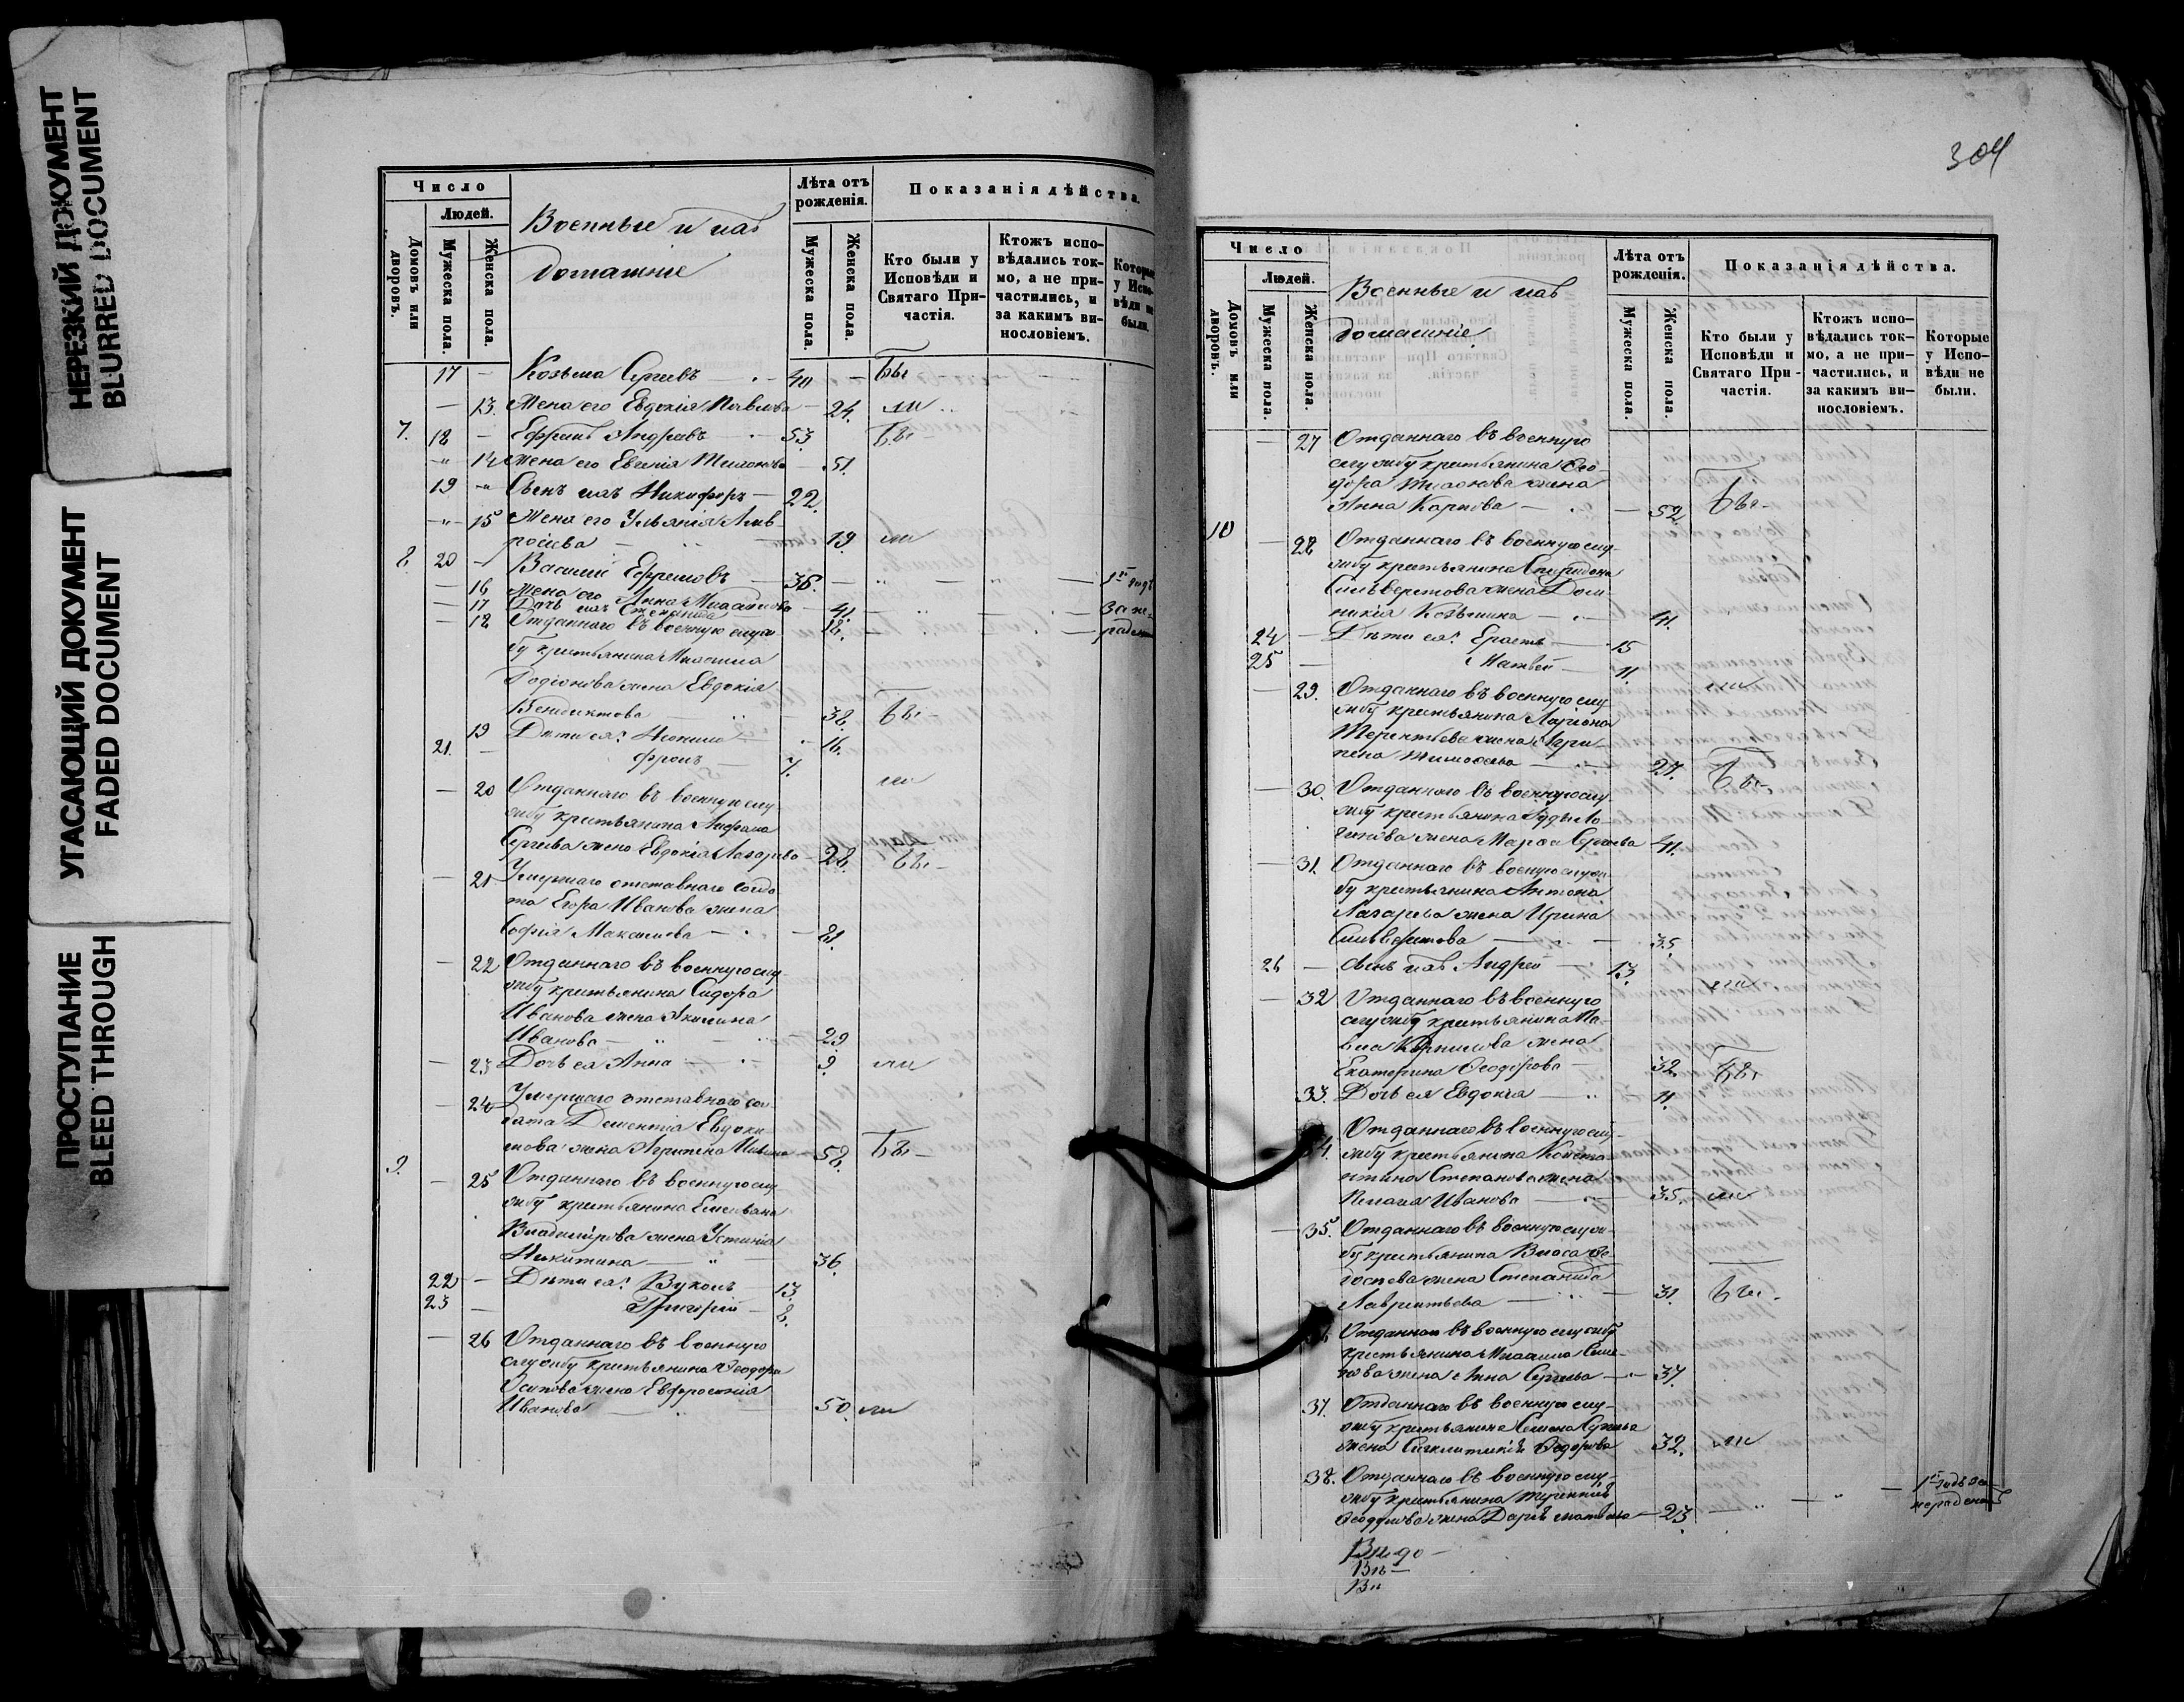 НЕРЕЗКИЙ ДОКУМЕНТ
BLURRED DOCUMENT
УГАСАЮЩИЙ ДОКУМЕНТ
FADED DOCUMENT
ПРОСТУПАНИЕ
BLEED THROUGH
Число
Людей.
Домовъ или дворовъ.
Мужеска пола.
Женска пола.
Военные и ихъ
домашніе
Лѣта отъ рожденія.
Мужеска пола.
Женска пола.
Показанія дѣйства.
Кто были у Исповѣди и Святаго Причастія.
Ктожъ исповѣдались токмо, а не причастились, и за какимъ винословіемъ.
Которые у Исповѣди не были.
17 — Козьма Сергѣевъ — 40 — Бы
— 13. Жена его Евдокія Павлова — 24. ли
7. 18 — Ефремъ Андреевъ — 53 Бы
" 14 Жена его Евгенія Тихонова — 51.
19 " Сынъ ихъ Никифоръ — 22.
" 15 Жена его Ульянія Амв-
росіева — 19. ли
8 20 — Василій Ефремовъ — 36. — " — " — 1й годъ
— 16 Жена его Анна Михайлова — 41. — за не-
— 17 Дочь ихъ Степанида — 18. — радѣніе
— 18 Отданнаго въ военную служ-
бу крестьянина Михаила
Родіонова жена Евдокія
Венедиктова — 38. Бы —
19 Дѣти ея: — 16.
21. — Фролъ — 7.
ли
— 20 Отданнаго въ военную слу-
жбу крестьянина
Сергѣева жена Евдокія Лазарева — 28. Бы —
— 21 Умершаго отставнаго солда-
та Егора Иванова жена
Софія Максимова — 81.
— 22 Отданнаго въ военную слу-
жбу крестьянина Сидора
Иванова жена Акилина
Иванова — 29.
— 23 Дочь ея Анна — 9. ли
— 24 Умершаго отставнаго сол-
дата Дементія Евдоки-
мова жена Агрипена — 58. Бы —
9.
— 25 Отданнаго въ военную слу-
жбу крестьянина Емельяна
Владимірова жена Устинія
Никитина — " — 36.
22 — Дѣти ея: Вуколъ — 13.
23 — Григорій — 8.
— 26 Отданнаго въ военную
службу крестьянина Ѳеодора
Осипова жена Евфросинія
Иванова — 50. ли
304
Число
Людей.
Домовъ или дворовъ.
Мужеска пола.
Женска пола.
Военные и ихъ
домашніе.
Лѣта отъ рожденія.
Мужеска пола.
Женска пола.
Показанія дѣйства.
Кто были у Исповѣди и Святаго Причастія.
Ктожъ исповѣдались токмо, а не причастились, и за какимъ винословіемъ.
Которые у Исповѣди не были.
— 27 Отданнаго въ военную
службу крестьянина Ѳео-
дора Тихонова жена
Анна Карпова — 52. Бы —
10
— 28 Отданнаго въ военную слу-
жбу крестьянина Спиридона
Сильверстова жена Дом-
никія Козьмина — 41.
24 — Дѣти ея: Ерастъ — 15
25 — Матвѣй — 11.
ли
— 29. Отданнаго въ военную слу-
жбу крестьянина Ларіона
Терентьева жена Агри-
пена Тимоѳеева — 27. Бы —
— 30. Отданнаго въ военную слу-
жбу крестьянина
жена Марѳа Сергѣева 41.
— 31. Отданнаго въ военную служ-
бу крестьянина Антона
Лазарева жена Ирина
Сильверстова — 35.
26 — Сынъ ихъ Андрей — 13.
ли
— 32 Отданнаго въ военную
службу крестьянина Па-
вла жена
Екатерина Ѳеодорова — 32. Бы
33. Дочь ея Евдокія — 11.
Отданнаго въ военную слу-
жбу крестьянина Конста-
нтина Степанова жена
Пелагея Иванова — 35. ли
— 35. Отданнаго въ военную служ-
бу крестьянина Власа Ѳе-
досѣева жена Степанида
Лаврентьева — 31. Бы —
Отданнаго въ военную службу
крестьянина Михаила Семе-
нова жена Анна Сергѣева — 37.
37. Отданнаго въ военную слу-
жбу крестьянина Семена
жена Синклитикія Ѳедорова 32. ли
38. Отданнаго въ военную слу-
жбу крестьянина Терентія
Ѳеодорова жена Дарія — 23. — " — 1й годъ за
нерадѣніе